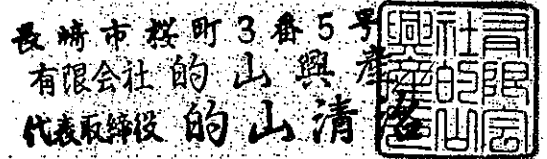 長崎市桜町3番5号
有限会社 的山興産
代表取締役 的山清